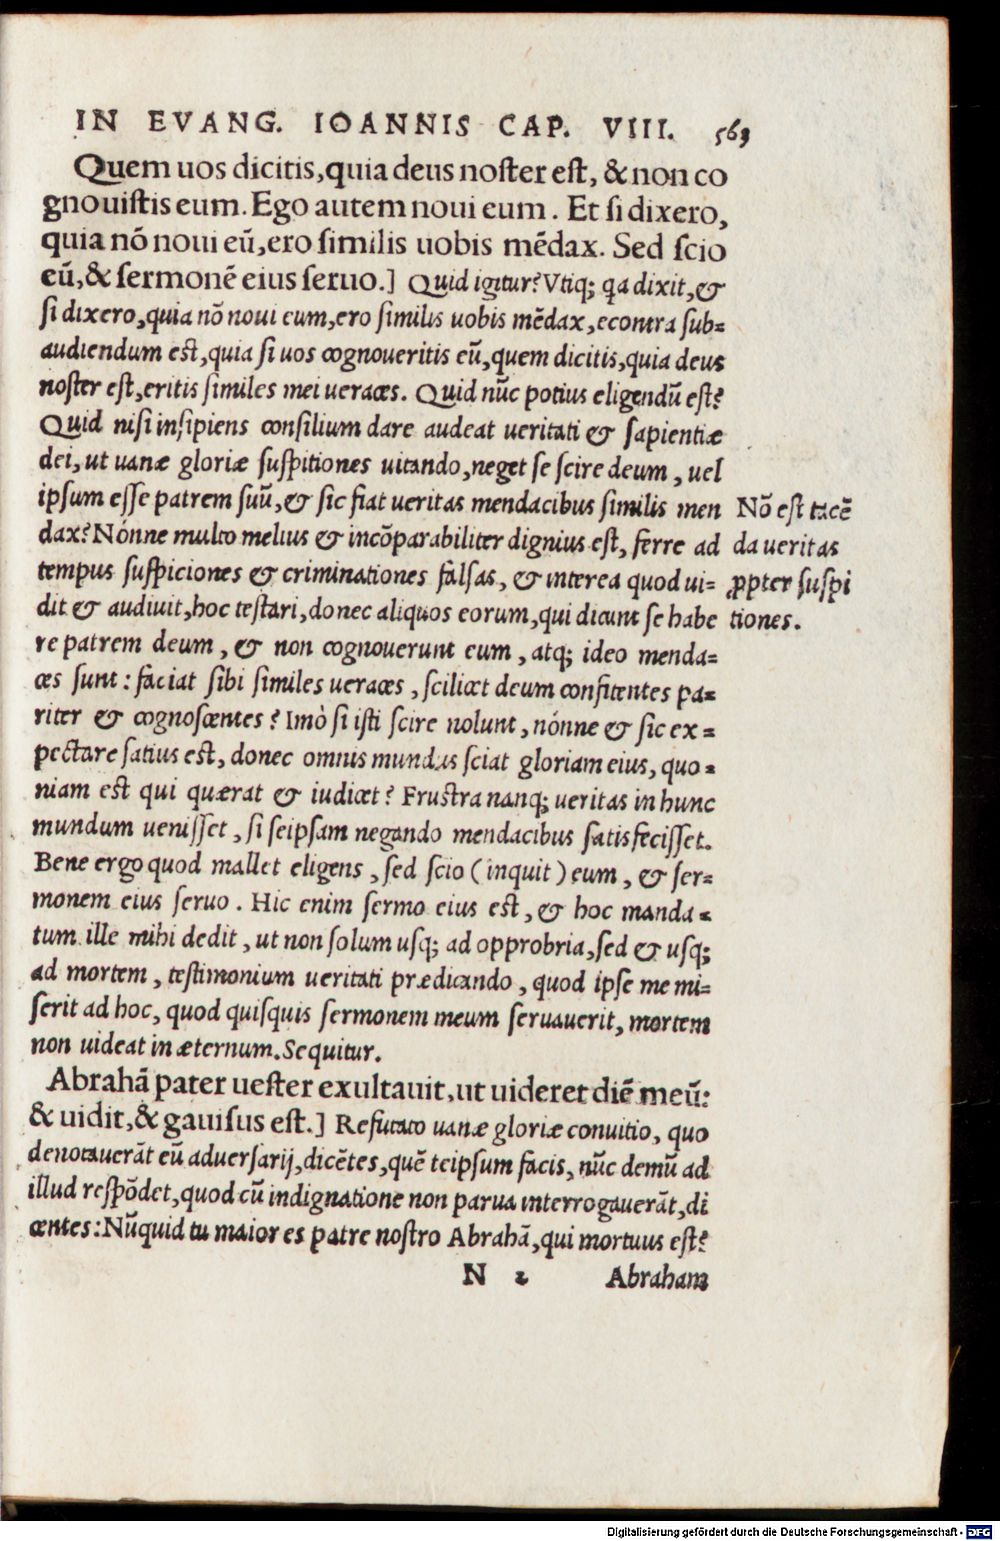 IN EVANG. IOANNIS CAP. VIII. 563
Quem uos dicitis, quia deus noster est, & non co
gnouistis eum. Ego autem noui eum. Et si dixero,
quia nō noui eū, ero similis uobis mēdax. Sed scio
eū, & sermonē eius seruo.] Quid igitur? Vtiq; qa dixit, &
si dixero, quia nō noui eum, ero similis uobis mēdax, econtra sub=
audiendum est, quia si uos cognoueritis eū, quem dicitis, quia deus
noster est, eritis similes mei ueraces. Quid nūc potius eligendū est?
Quid nisi insipiens consilium dare audeat ueritati & sapientiæ
dei, ut uanæ gloriæ suspitiones uitando, neget se scire deum, uel
ipsum esse patrem suū, & sic fiat ueritas mendacibus similis men
dax? Nónne multo melius & incōparabiliter dignius est, ferre ad
tempus suspiciones & criminationes falsas, & interea quod ui=
dit & audiuit, hoc testari, donec aliquos eorum, qui dicunt se habe
re patrem deum, & non cognouerunt eum, atq; ideo menda=
ces sunt: faciat sibi similes ueraces, scilicet deum confitentes pa=
riter & cognoscentes? Imò si isti scire nolunt, nónne & sic ex=
pectare satius est, donec omnis mundus sciat gloriam eius, quo=
niam est qui quærat & iudicet? Frustra nanq; ueritas in hunc
mundum uenisset, si seipsam negando mendacibus satisfecisset.
Bene ergo quod mallet eligens, sed scio (inquit) eum, & ser=
monem eius seruo. Hic enim sermo eius est, & hoc manda=
tum ille mihi dedit, ut non solum usq; ad opprobria, sed & usq;
ad mortem, testimonium ueritati prædicando, quod ipse me mi=
serit ad hoc, quod quisquis sermonem meum seruauerit, mortem
non uideat in æternum. Sequitur.
Abrahā pater uester exultauit, ut uideret diē meū:
& uidit, & gauisus est.] Refutato uanæ gloriæ conuitio, quo
denotauerāt eū aduersarij, dicētes, quē teipsum facis, nūc demū ad
illud respōdet, quod cū indignatione non parua interrogauerāt, di
centes: Nūquid tu maior es patre nostro Abrahā, qui mortuus est?
N 2 Abraham
Nō est tacē
da ueritas
ꝓpter suspi
tiones.
Digitalisierung gefördert durch die Deutsche Forschungsgemeinschaft - DFG